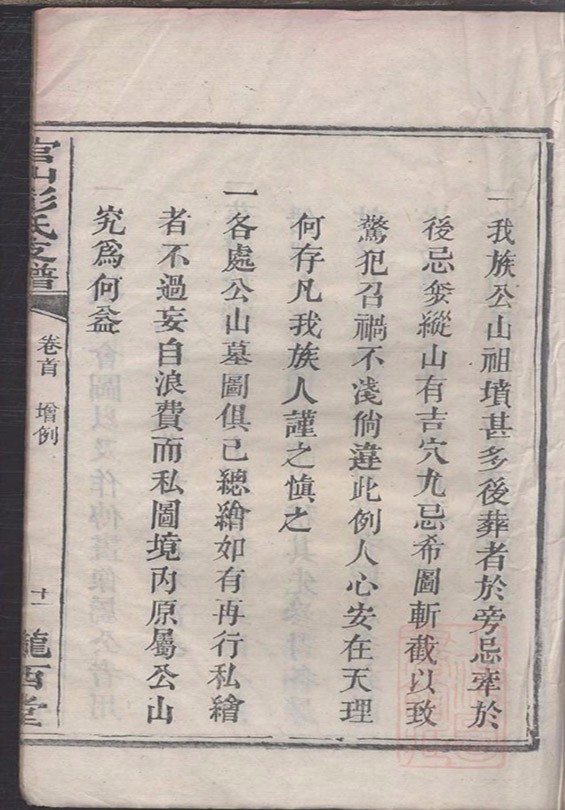 一我族公山祖墳甚多後葬者於旁忌牽於
後忌㕘縱山有吉穴尤忌希圖斬截以致
驚犯召禍不淺倘違此例人心安在天理
何存凡我族人謹之慎之
一各處公山墓圖俱已總繪如有再行私繪
者不過妄自浪費而私圖境內原屬公山
究爲何益
官山彭氏支譜
卷首 增例
十一
隴西堂